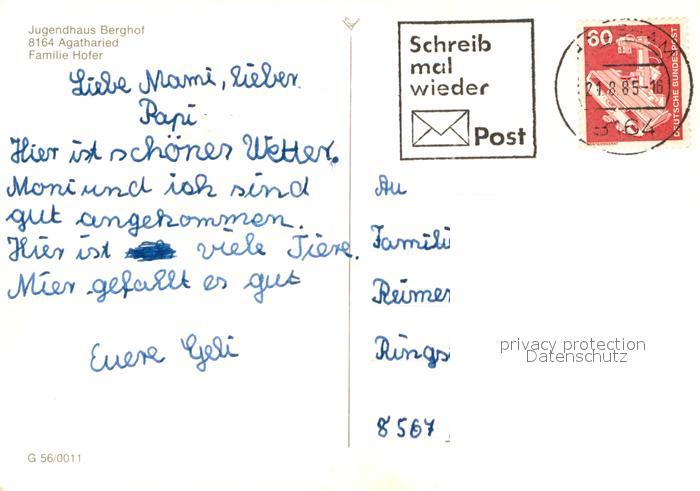 Jugendhaus Berghof
8164 Agatharied
Familie Hofer
Liebe Mami, Lieber
Papi
Hier ist schönes Wetter.
Moni und ich sind
gut angekommen.
Hier ist viele Tiere.
Mier gefallt es gut
Euere Geli
G 56/0011
Schreib
mal
wieder
Post
60
DEUTSCHE BUNDESPOST
21.8.85-16
8164
An
Famili
Reimer
Rings
8567
privacy protection
Datenschutz